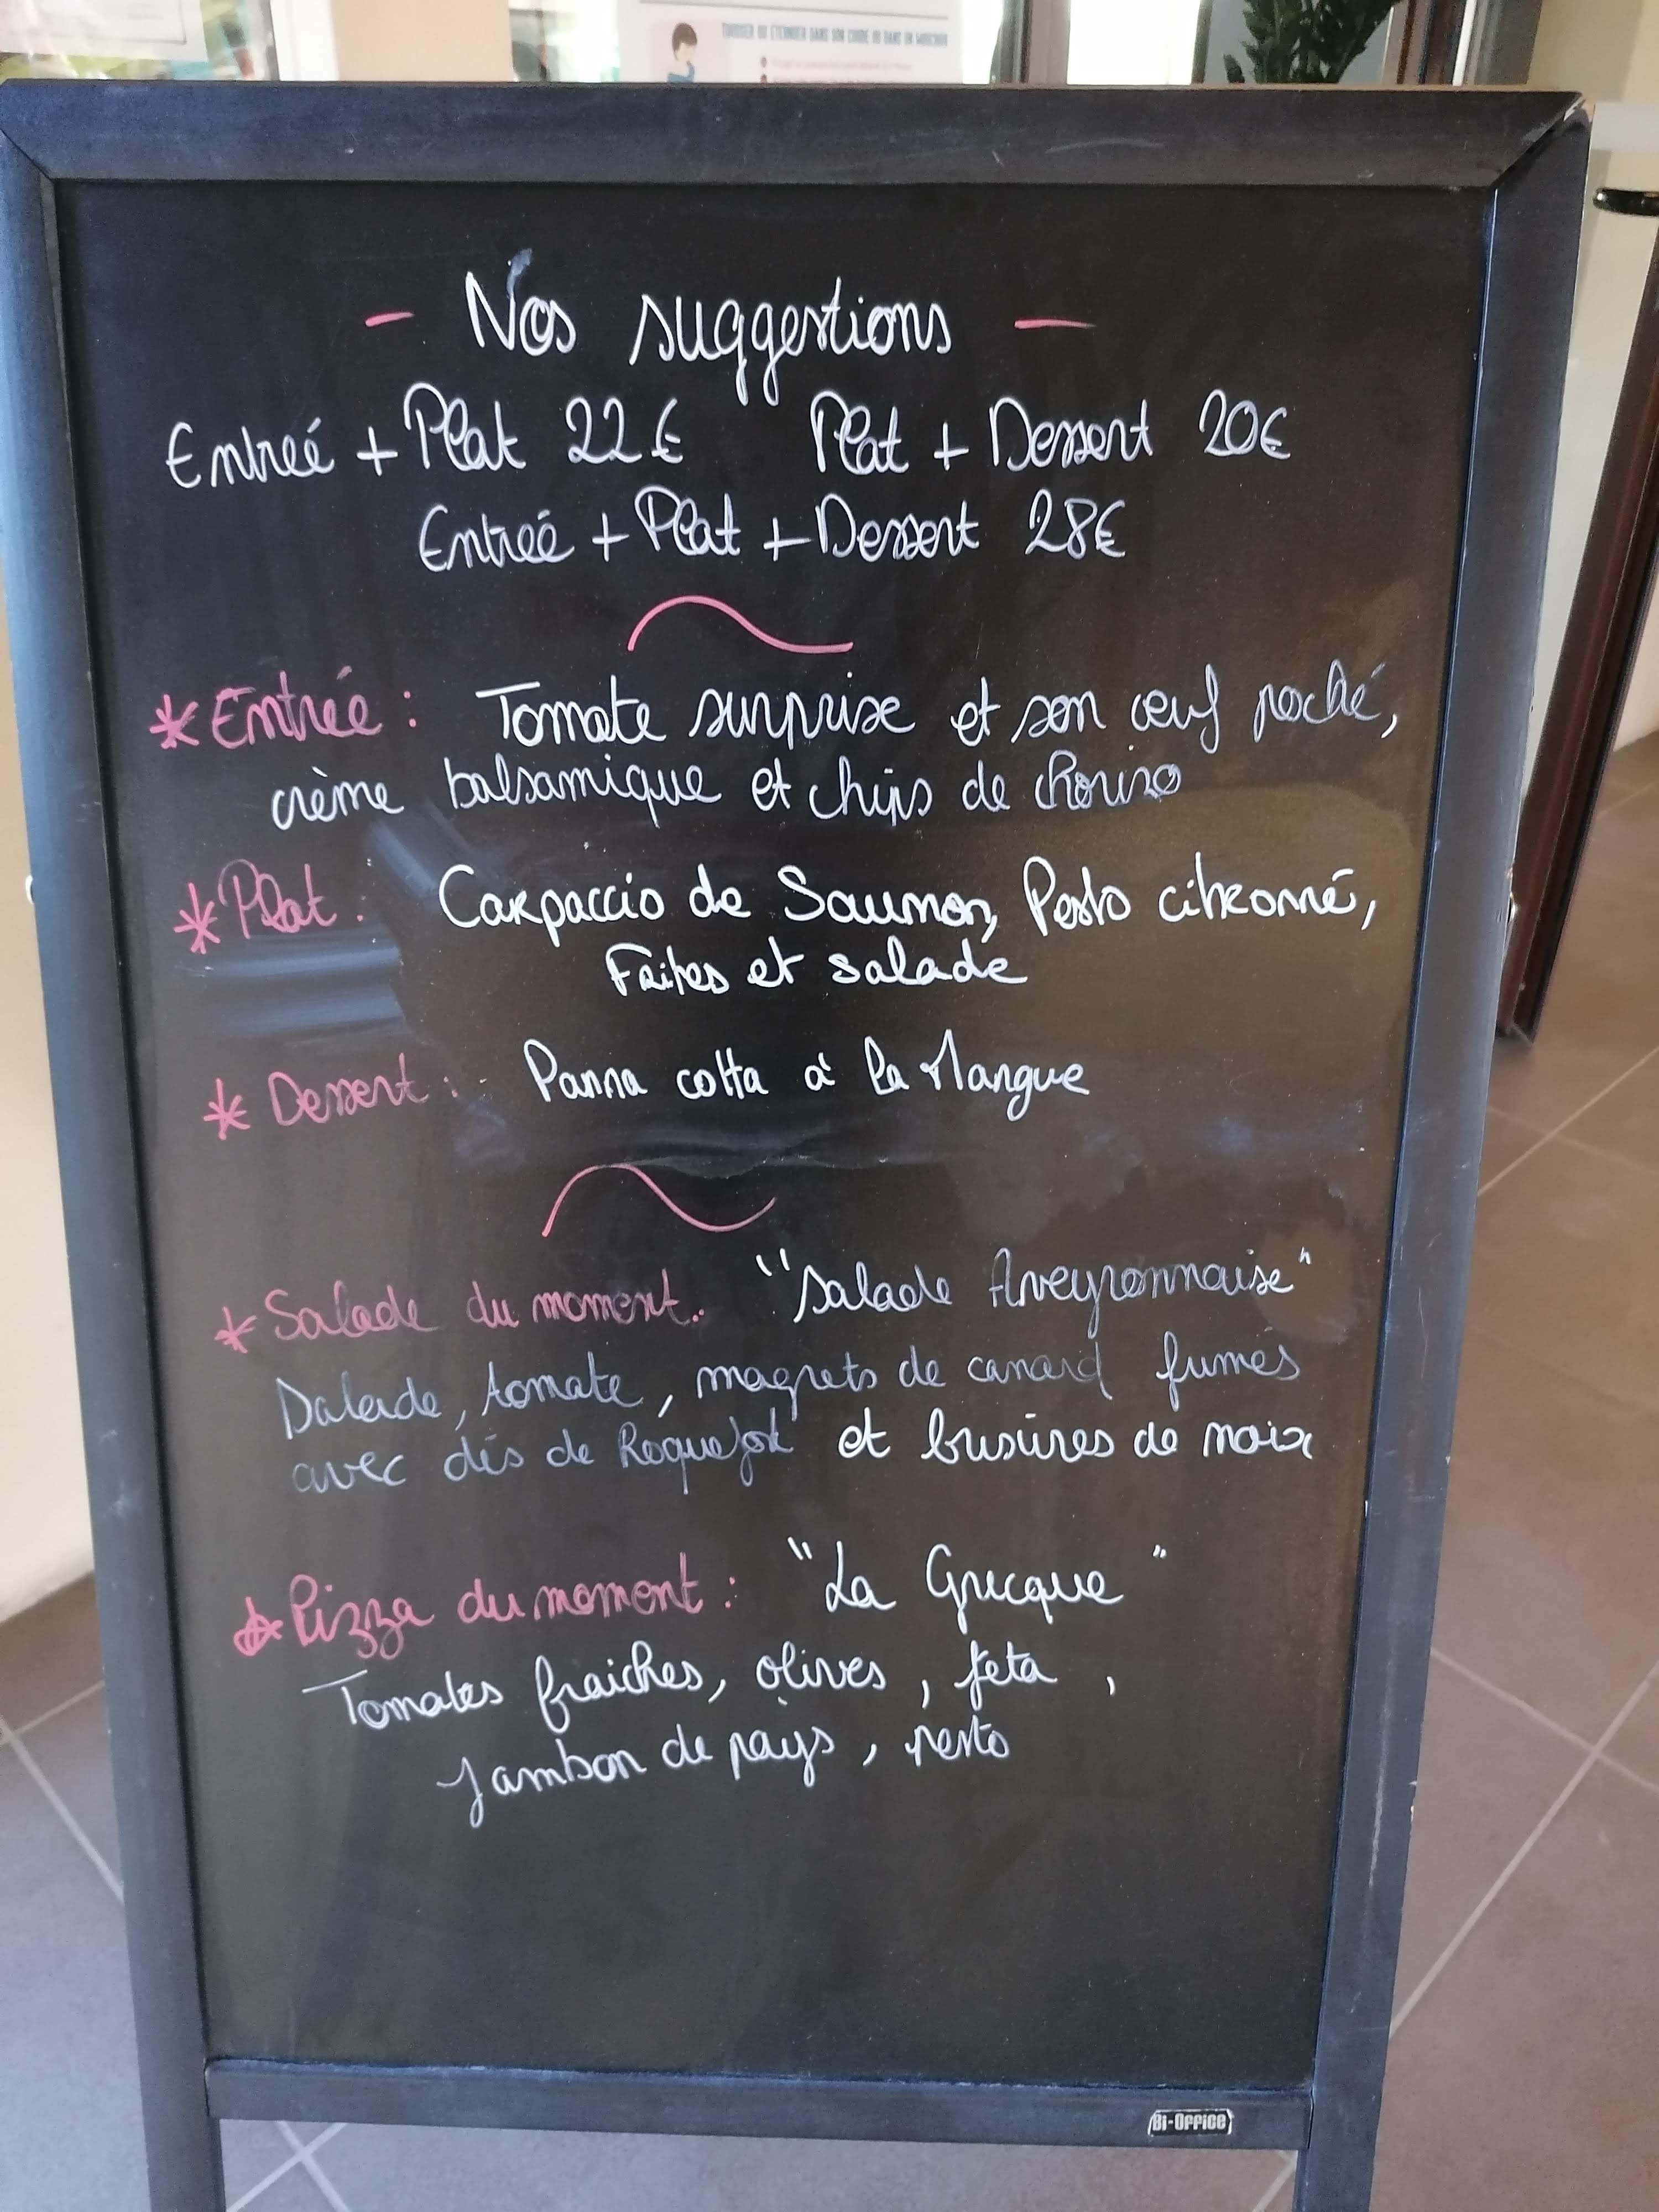 TOUSSER OU ÉTERNUER DANS SON COUDE OU DANS UN MOUCHOIR
- Nos suggestions -
Entreé + Plat 22€ Plat + Dessert 20€
Entreé + Plat + Dessert 28€
* Entrée : Tomate surprise et son œuf poché,
crème balsamique et chips de chorizo
* Plat : Carpaccio de Saumon, Pesto citronné,
Frites et salade
* Dessert : Panna cotta à la Mangue
* Salade du moment : "Salade Aveyronnaise"
Salade, tomate, magrets de canard fumés
avec dés de Roquefort et brisures de noix
* Pizza du moment : "La Grecque"
Tomates fraiches, olives, feta,
Jambon de pays, pesto
Bi-Office